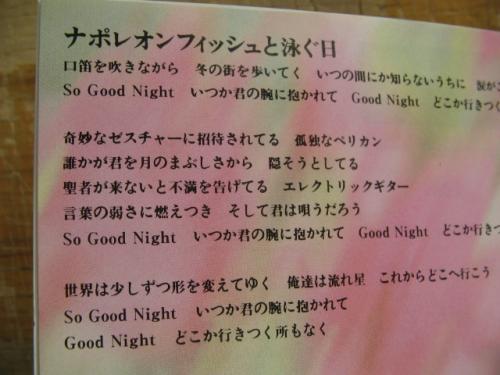 ナポレオンフィッシュと泳ぐ日
口笛を吹きながら　冬の街を歩いてく　いつの間にか知らないうちに　涙が
So Good Night　いつか君の腕に抱かれて　Good Night　どこか行きつく
奇妙なゼスチャーに招待されてる　孤独なペリカン
誰かが君を月のまぶしさから　隠そうとしてる
聖者が来ないと不満を告げてる　エレクトリックギター
言葉の弱さに燃えつき　そして君は唄うだろう
So Good Night　いつか君の腕に抱かれて　Good Night　どこか行きつ
世界は少しずつ形を変えてゆく　俺達は流れ星　これからどこへ行こう
So Good Night　いつか君の腕に抱かれて
Good Night　どこか行きつく所もなく